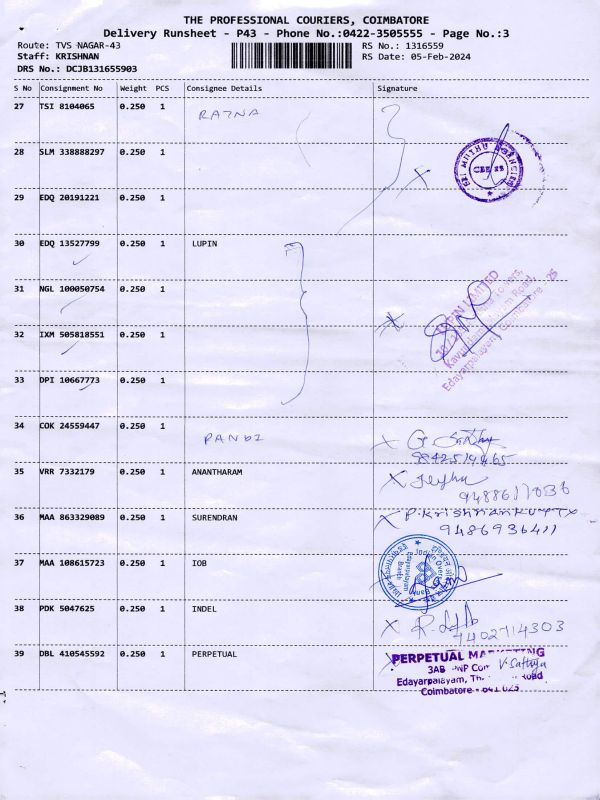 THE PROFESSIONAL COURIERS, COIMBATORE
Delivery Runsheet - P43 - Phone No.:0422-3505555 - Page No.:3
Route: TVS NAGAR-43 RS No.: 1316559
Staff: KRISHNAN RS Date: 05-Feb-2024
DRS No.: DCJB131655903
S No Consignment No Weight PCS Consignee Details Signature
27 TSI 8104065 0.250 1 RATNA
28 SLM 338888297 0.250 1
29 EDQ 20191221 0.250 1
30 EDQ 13527799 0.250 1 LUPIN
31 NGL 100050754 0.250 1
LUPIN LIMITED
32 IXM 505818551 0.250 1
Edayarpalayam, Coimbatore - 25
33 DPI 10667773 0.250 1
34 COK 24559447 0.250 1 PANDI
35 VRR 7332179 0.250 1 ANANTHARAM
36 MAA 863329089 0.250 1 SURENDRAN P.KRISHNANKUTTY
9486936411
37 MAA 108615723 0.250 1 IOB
Edayarpalayam
Branch
38 PDK 5047625 0.250 1 INDEL
7402714303
39 DBL 410545592 0.250 1 PERPETUAL PERPETUAL MARKETING
3AB
V. Sathya
Edayarpalayam, Road
Coimbatore - 641 025